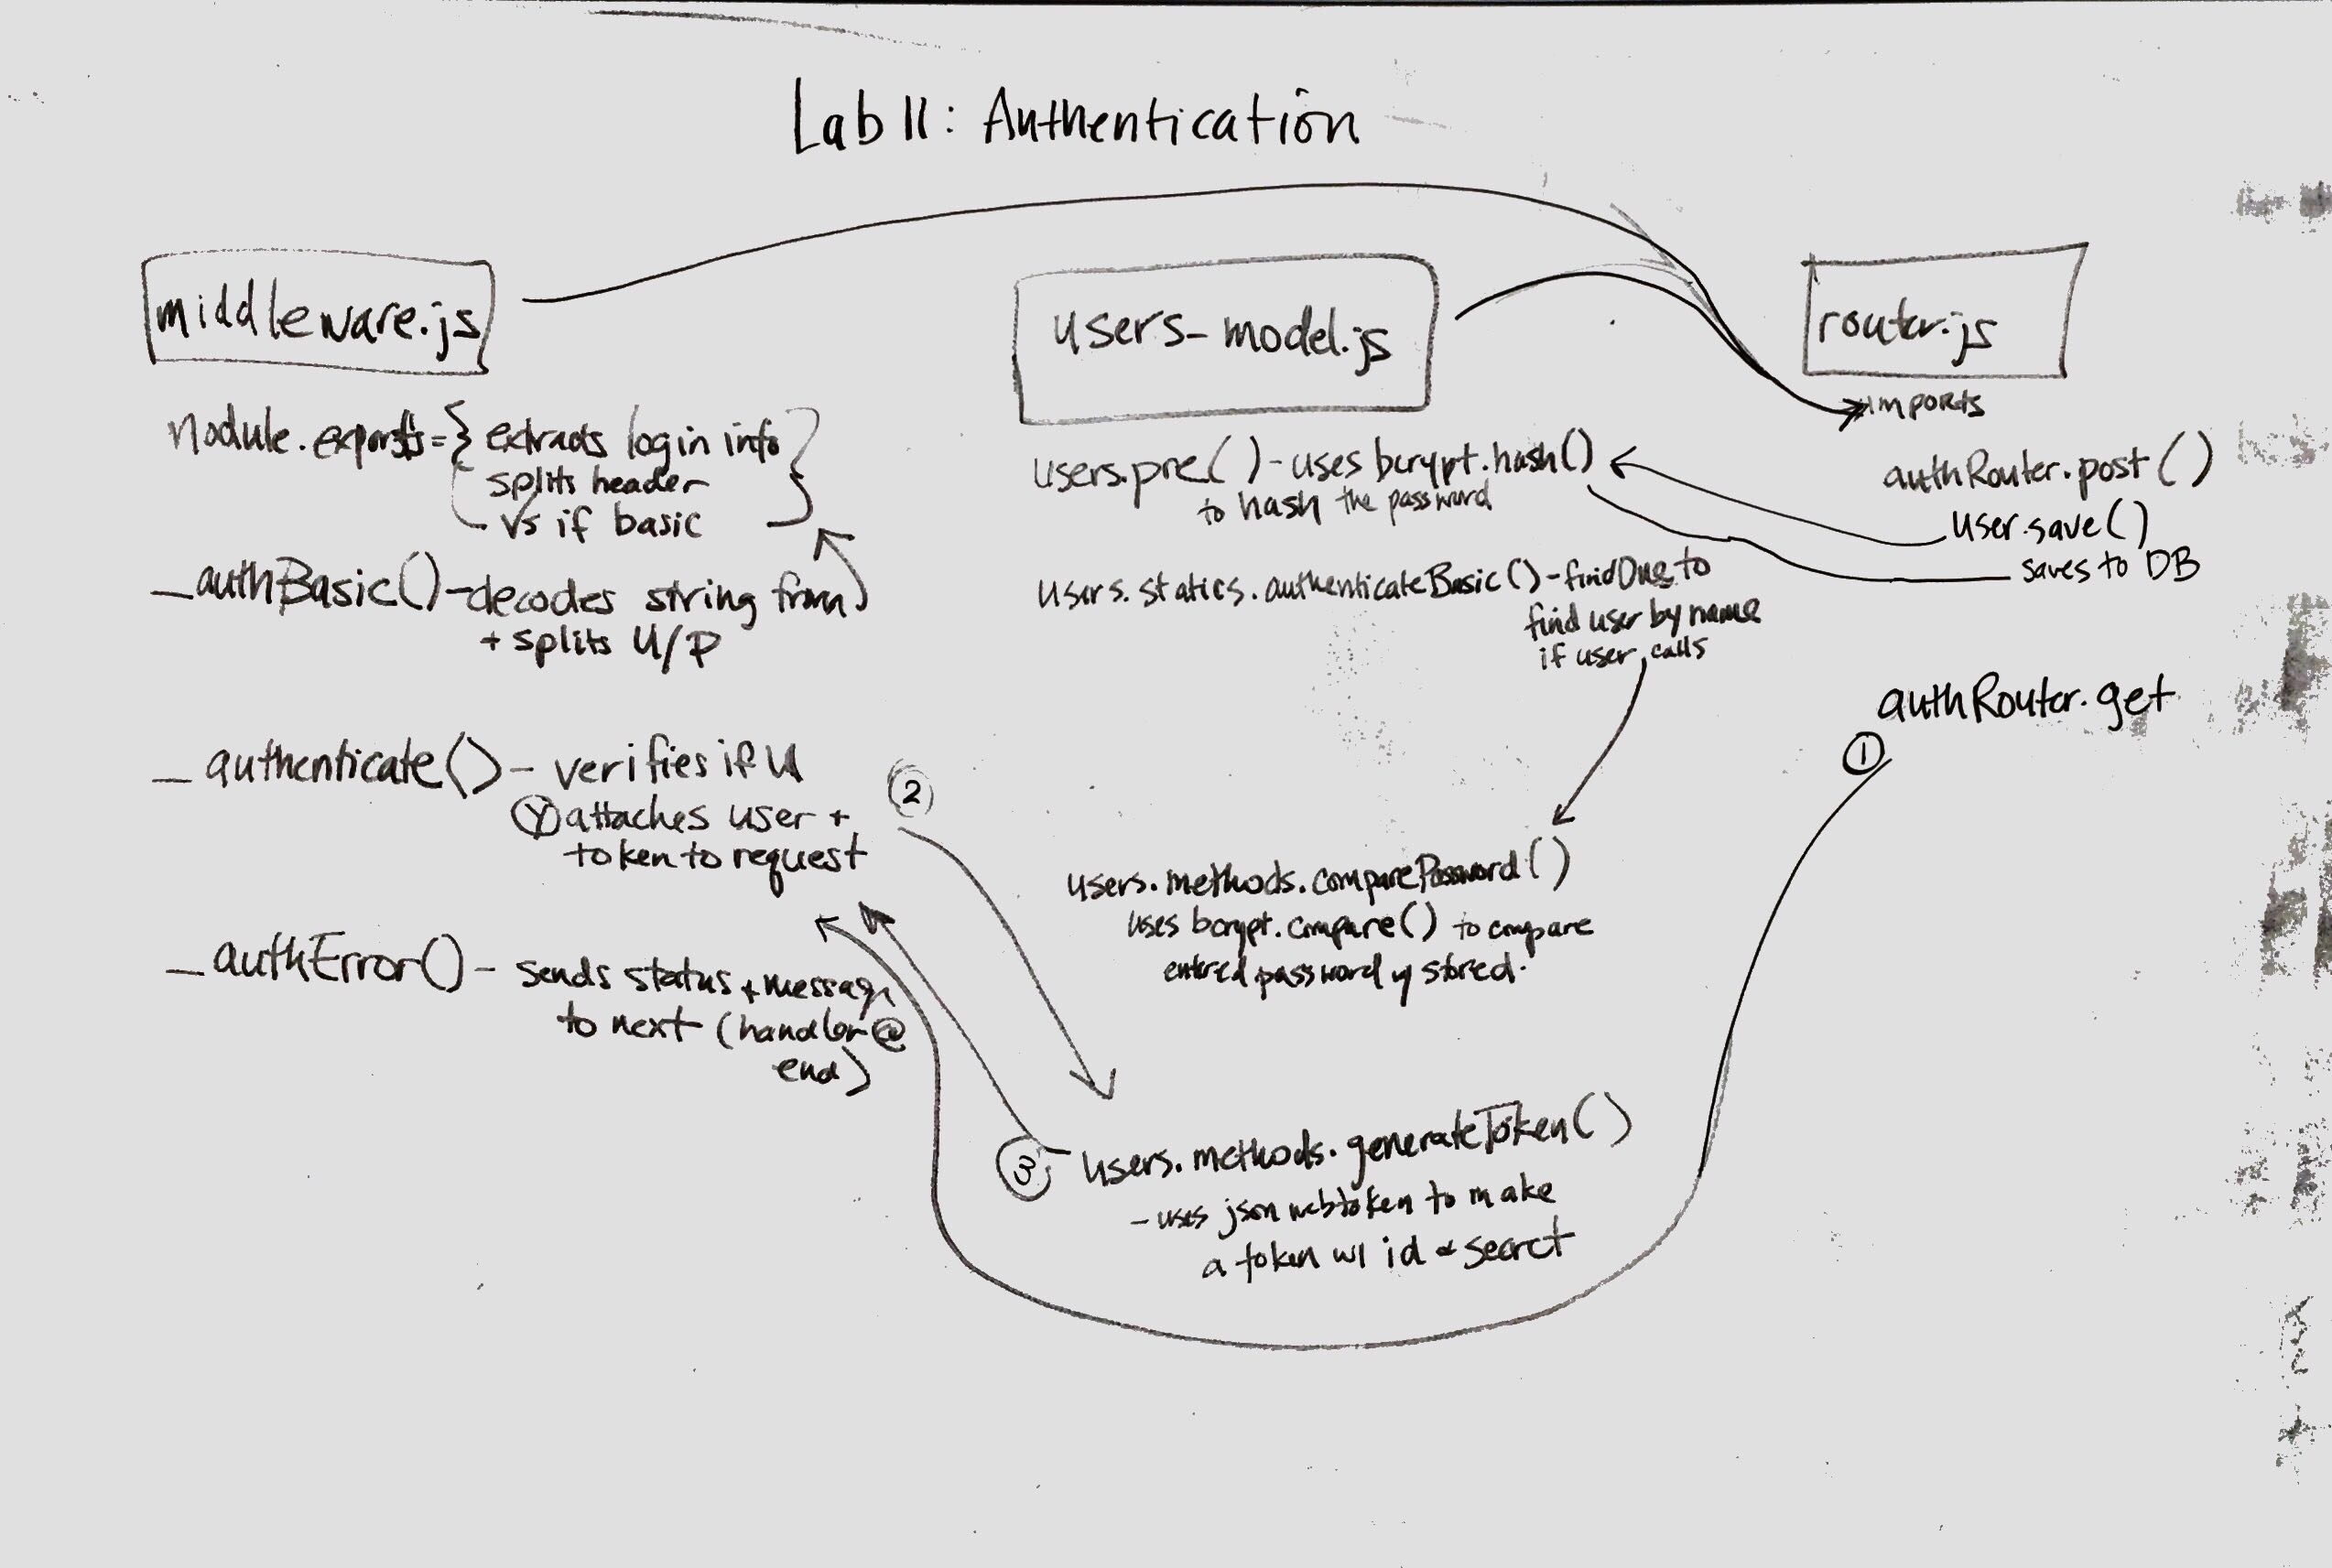 Lab 11: Authentication
middleware.js
module.exports = { extracts login info
splits header
√s if basic }
_authBasic() - decodes string from
+ splits U/P
_authenticate() - verifies if U
Ⓨ attaches user +
token to request
_authError() - sends status + message
to next (handler @
end)
users-model.js
users.pre() - uses bcrypt.hash()
to hash the password
users.statics.authenticateBasic() - findOne to
find user by name
if user, calls
users.methods.comparePassword()
uses bcrypt.compare() to compare
entered password w/ stored.
②
③ users.methods.generateToken()
- uses jsonwebtoken to make
a token w/ id & secret
router.js
imports
authRouter.post()
user.save()
saves to DB
authRouter.get
①